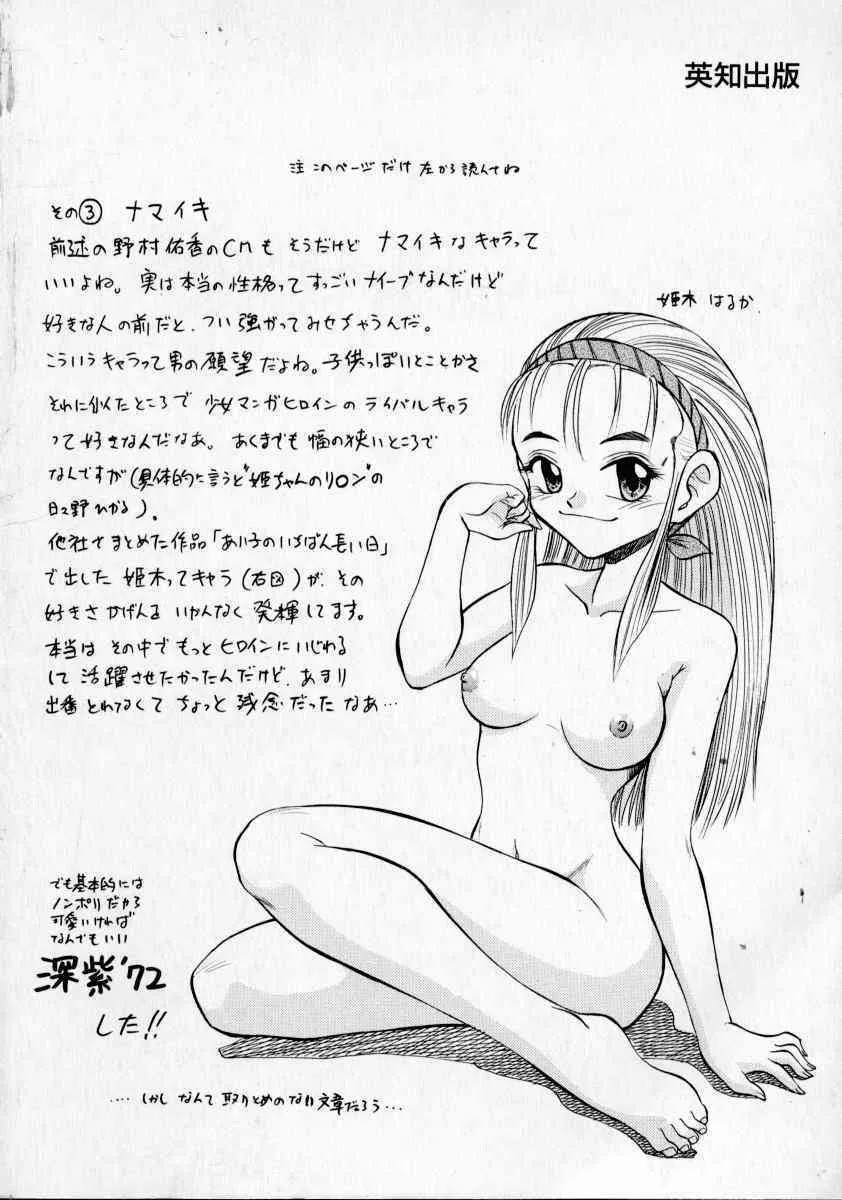 英知出版
注 このページだけ 左から読んでね
その③ ナマイキ
前述の野村佑香のCMもそうだけど ナマイキなキャラって
いいよね。実は本当の性格ってすっごいナイーブなんだけど
好きな人の前だと、つい強がってみせちゃうんだ。
こういうキャラって男の願望だよね。子供っぽいとことかさ
それに似たところで 少女マンガヒロインのライバルキャラ
って好きなんだなあ。あくまでも幅の狭いところで
なんですが(具体的に言うと"姫ちゃんのリ○ン"の
日々野ひかる)。
他社でまとめた作品「あい子のいちばん長い日」
で出した 姫木ってキャラ(右図)が、その
好きさかげんを いかんなく 発揮してます。
本当は その中でもっとヒロインにいじわる
して 活躍させたかったんだけど、あまり
出番とれなくて ちょっと残念だったなあ…
姫木 はるか
でも基本的には
ノンポリだから
可愛いければ
なんでもいい
深紫'72
した!!
‥‥しかし なんて 取りとめのない文章だろう…